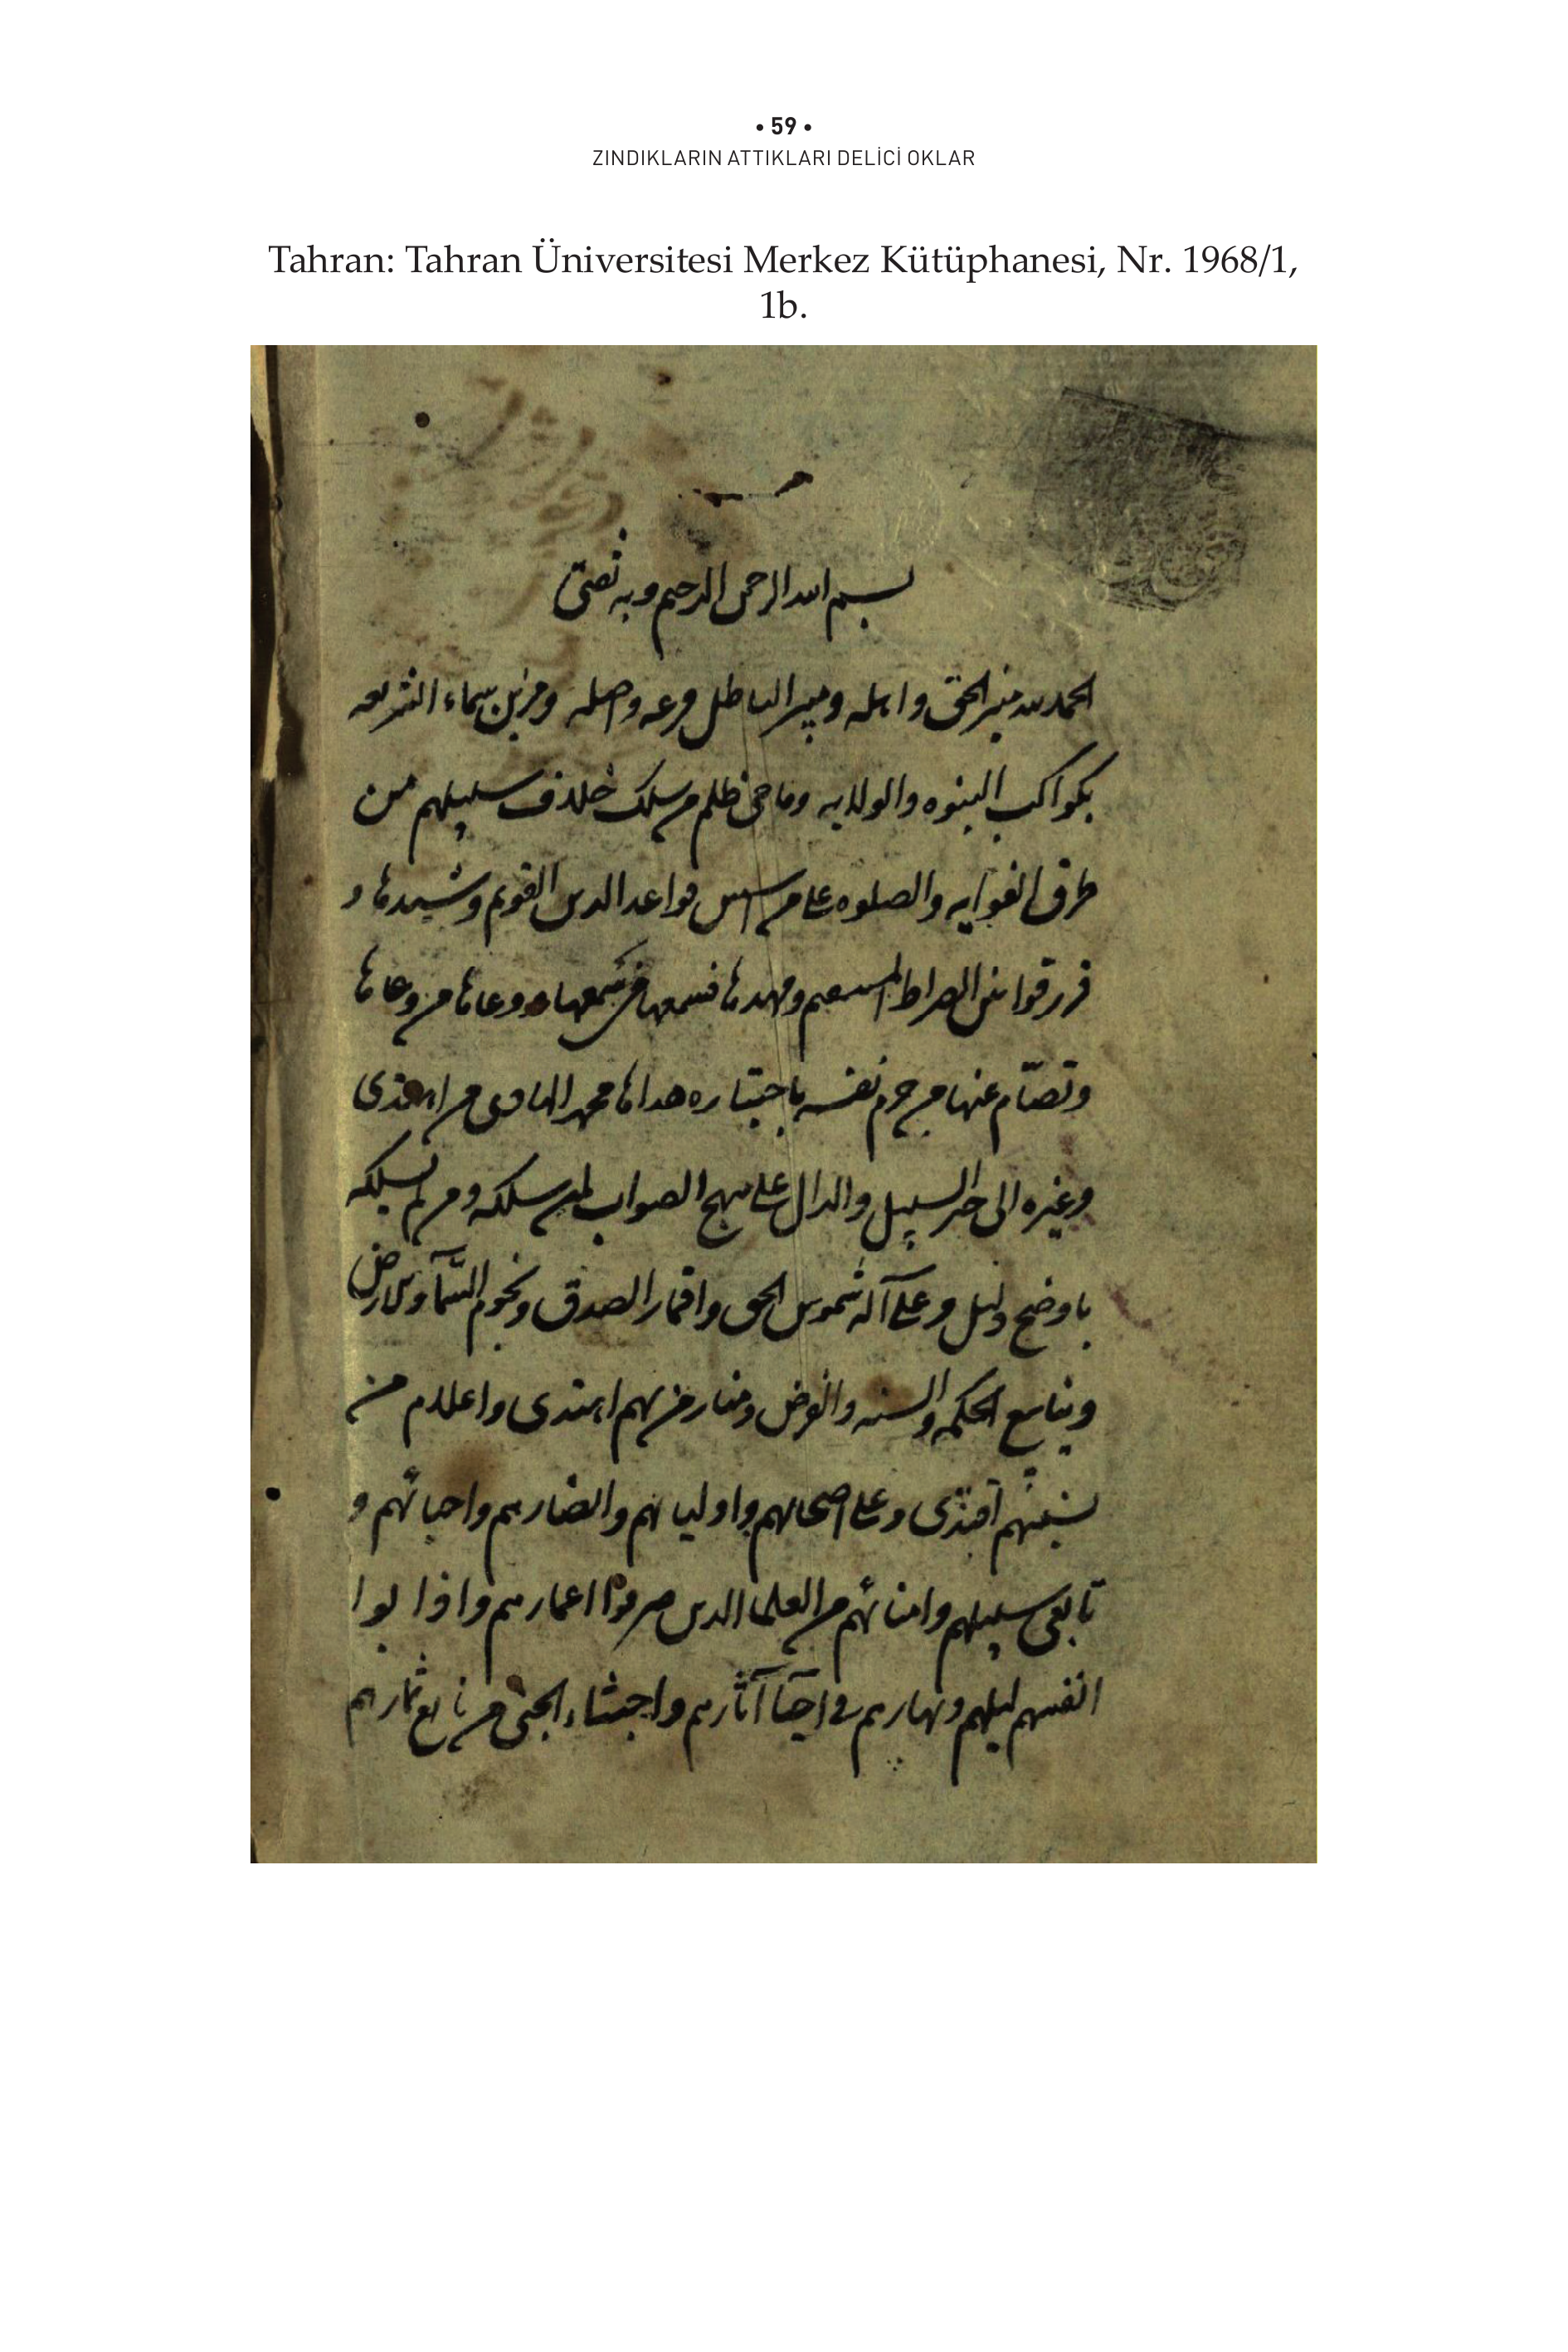 • 59 •
ZINDIKLARIN ATTIKLARI DELİCİ OKLAR
Tahran: Tahran Üniversitesi Merkez Kütüphanesi, Nr. 1968/1,
1b.
بسم الله الرحمن الرحيم وبه ثقتي
الحمد لله منير الحق واهله ومبير الباطل فرعه واصله ومزين سماء الشريعه
بكواكب النبوه والولايه وماحي ظلم من سلك خلاف سبيلهم من
طرق الغوايه والصلوه على من اسس قواعد الدين القويم وشيدها و
قرر قوانين الصراط المستقيم ومهدها فسمعها من سمعها ووعاها من وعاها
وتصامّ عنها من حرم نفسه باختياره هداها محمد الهادي من اهتدى
وغيره الى خير السبيل والدال على نهج الصواب لمن سلكه ومن لم يسلكه
باوضح دليل وعلى آله شموس الحق واقمار الصدق ونجوم السمآء والارض
وينابيع الحكمه والسنه والفرض ومنار من بهم اهتدى واعلام من
بسنتهم اقتدى وعلى اصحابهم واوليائهم وانصارهم واحبائهم و
تابعي سبيلهم وامنائهم من العلما الذين صرفوا اعمارهم واذابوا
انفسهم ليلهم ونهارهم في احيآ آثارهم واجتناء الجنى من يانع ثمارهم